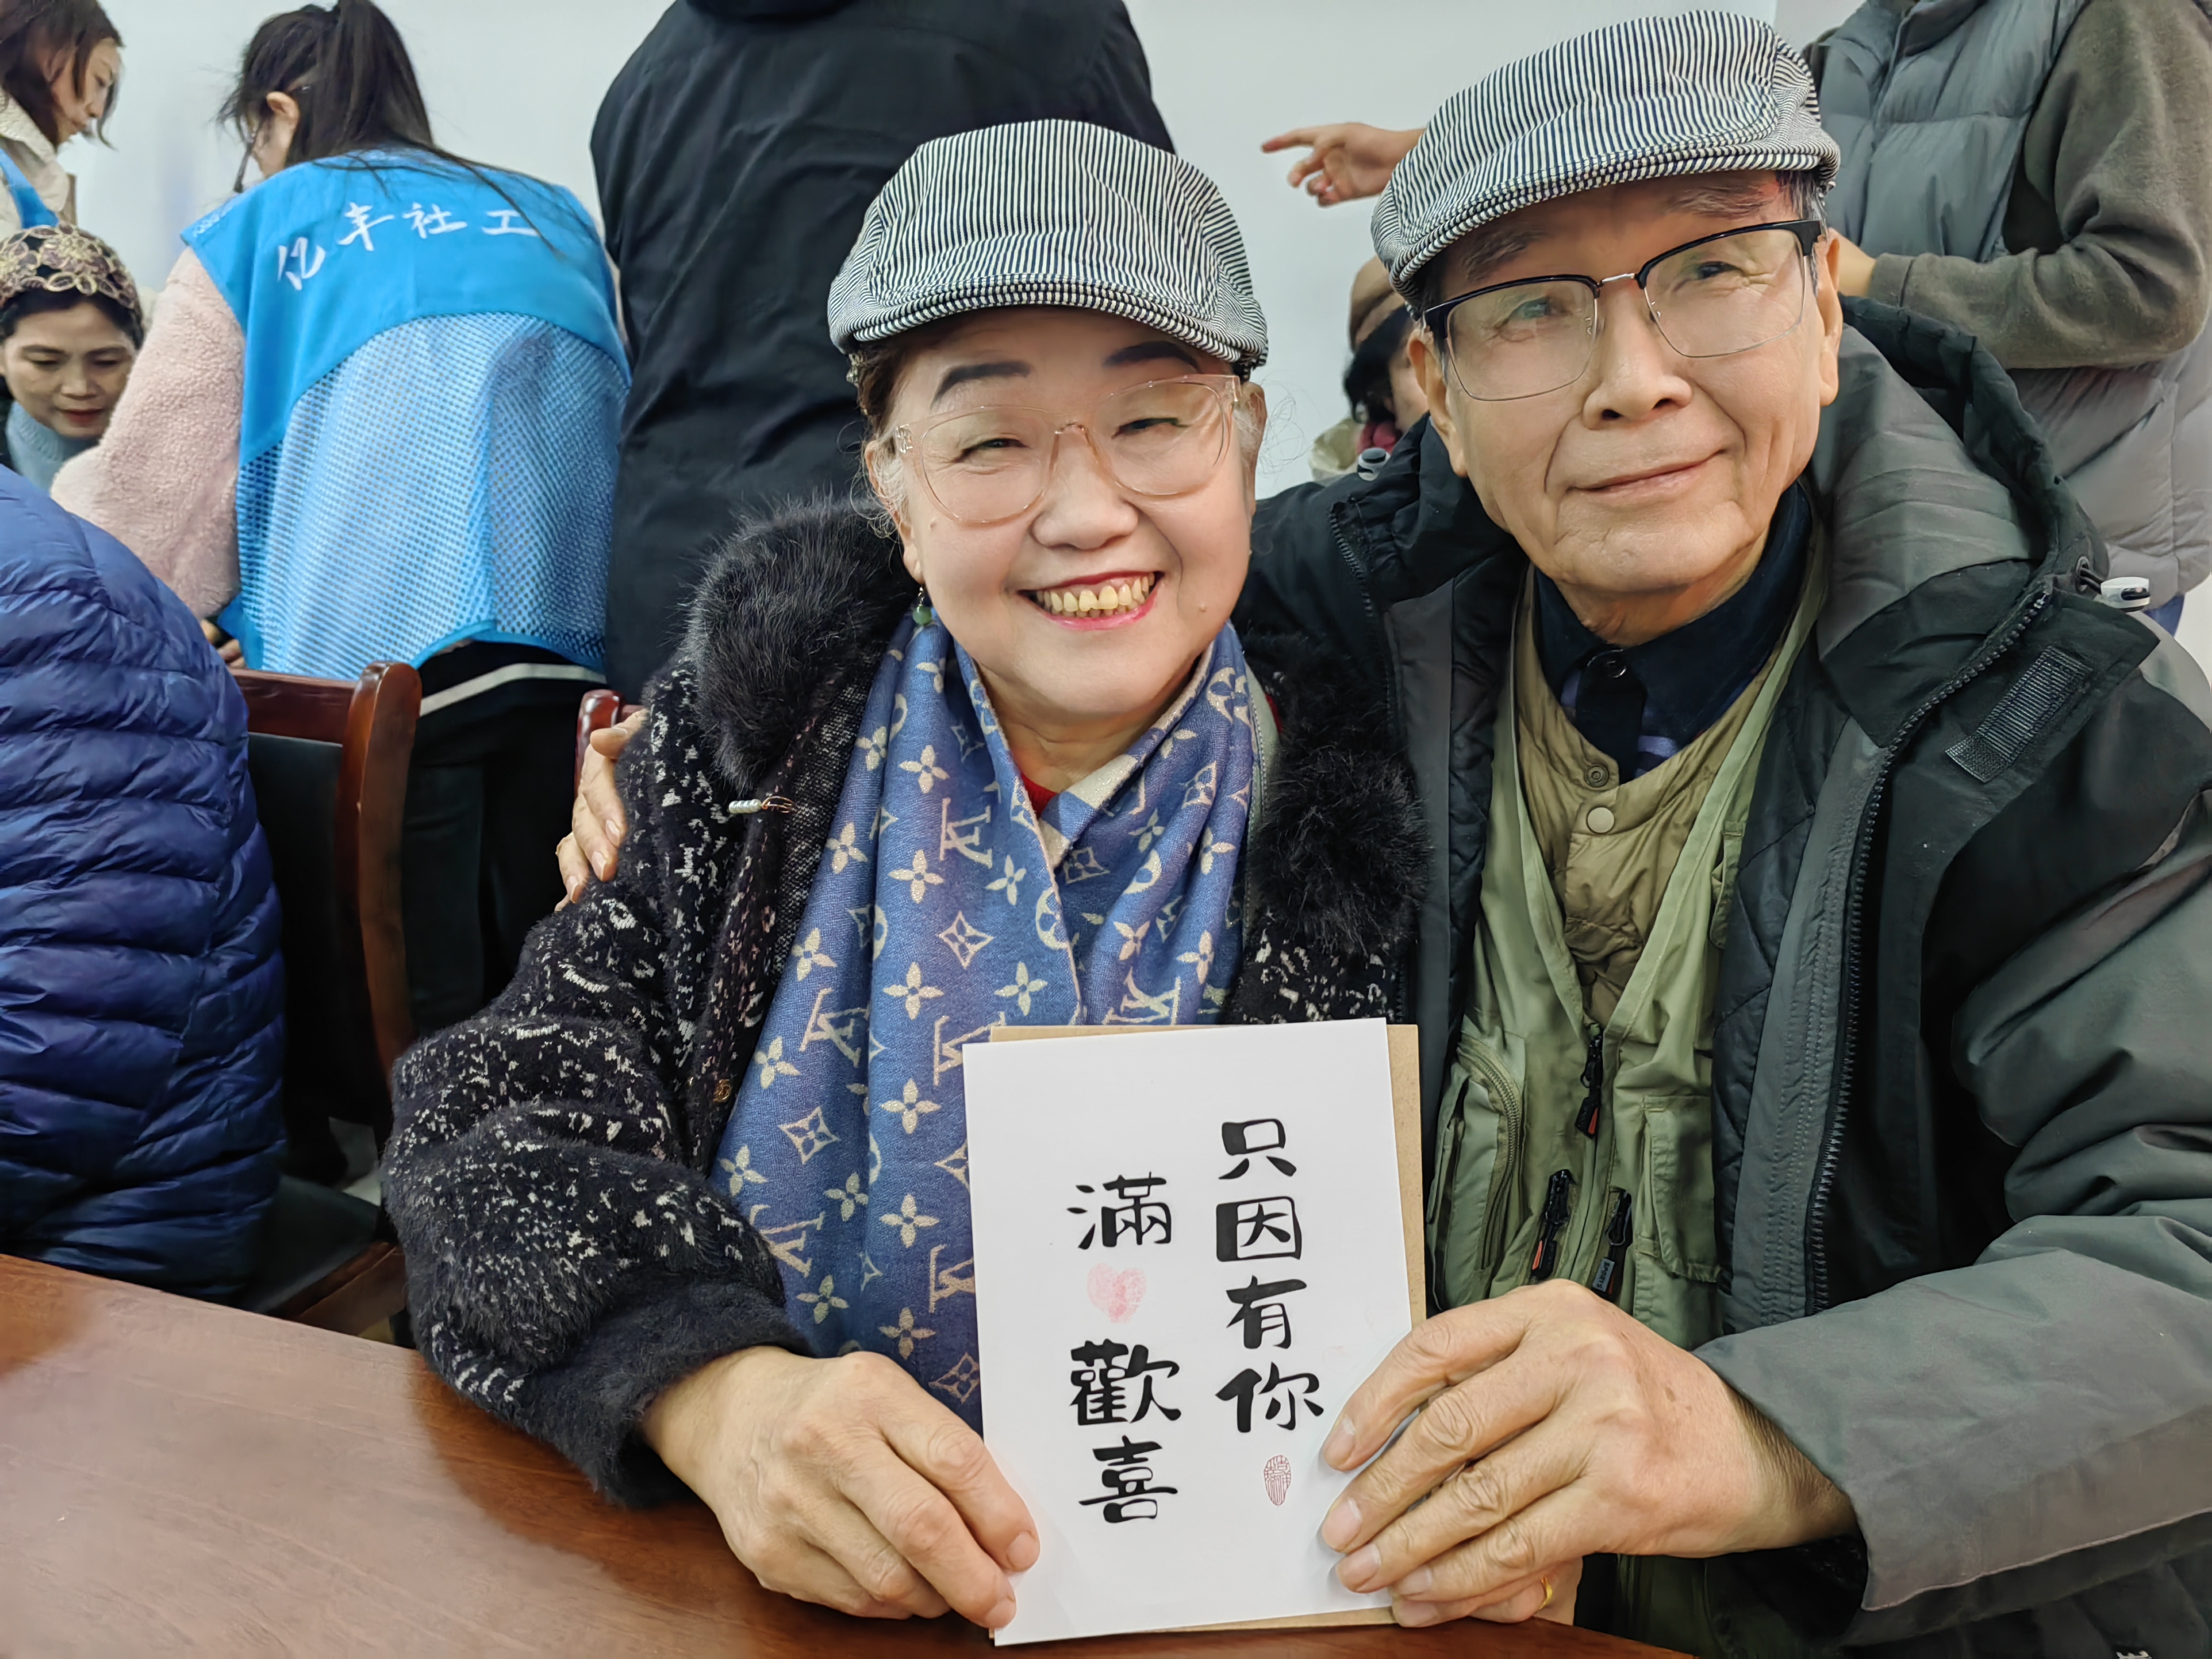 亿丰社工
只因有你
滿歡喜